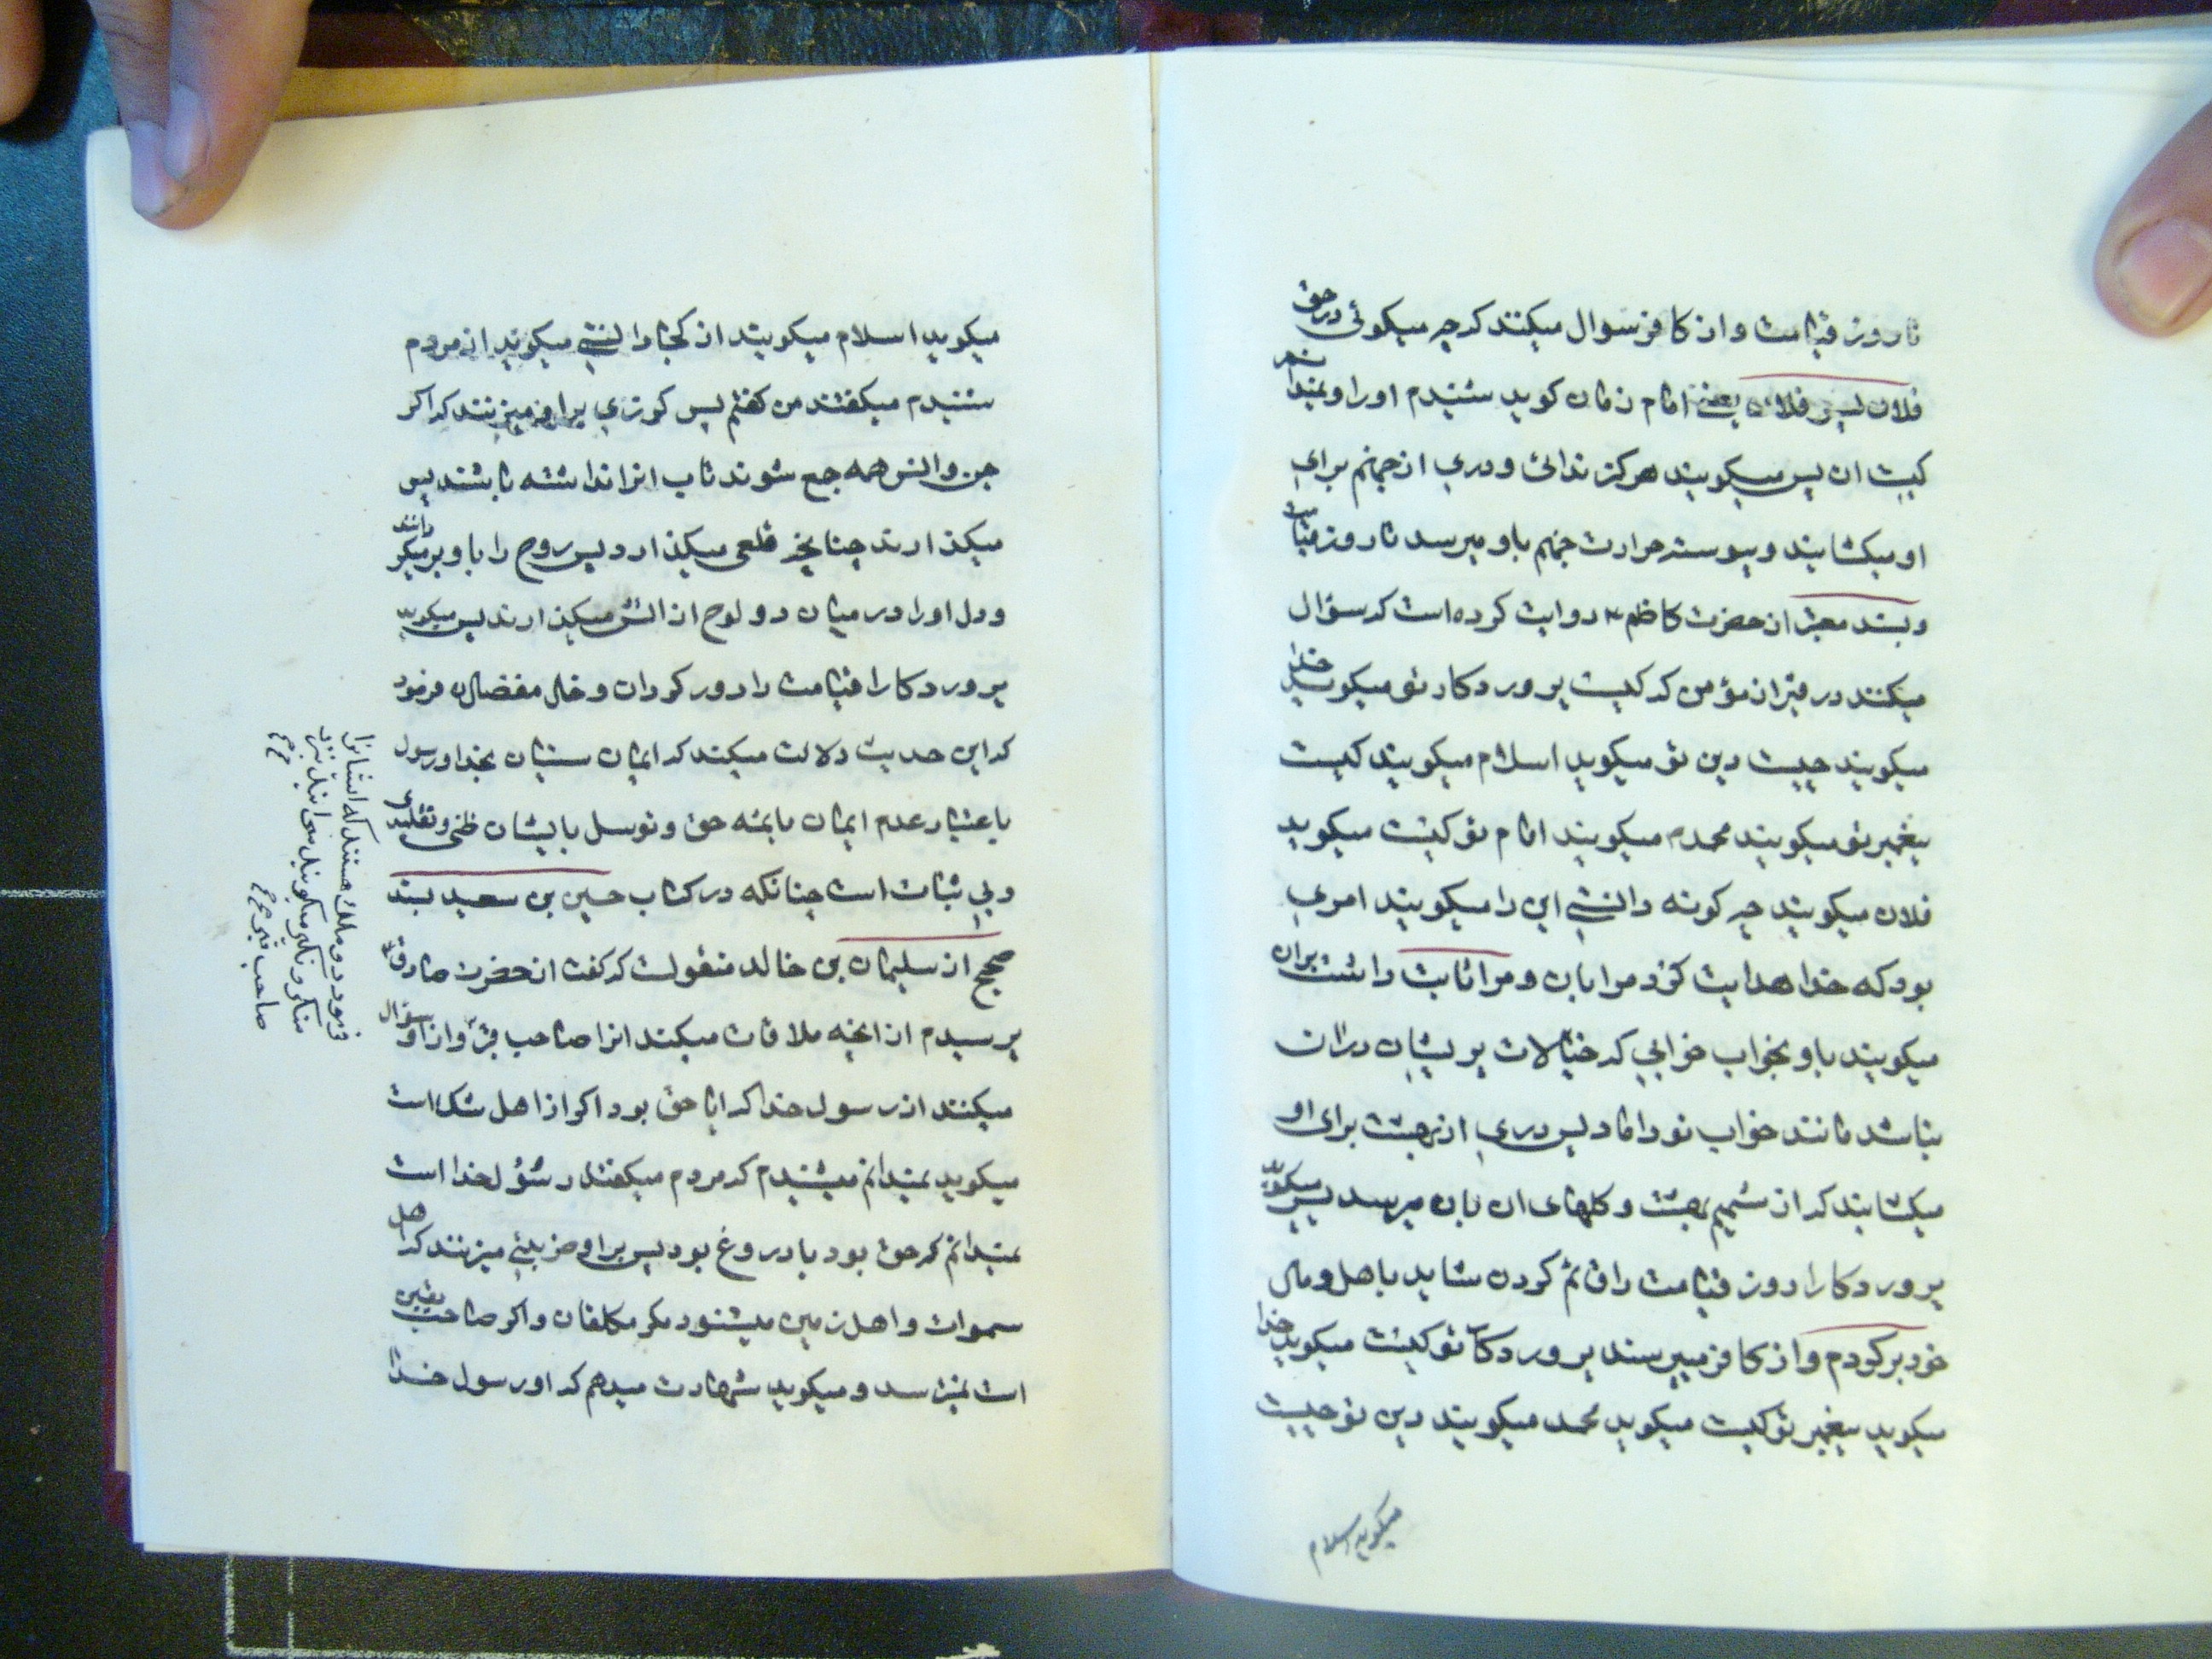 تا روز قیامت و از کافر سوال میکنند که چه میکوئی در حق
فلان پسر فلان یعنی امام زمان کوید شنیدم او را و نمیدانم
کیست ان پس میکویند هرکز ندانی و دری از جهنم برای
او میکشایند و پیوسته حرارت جهنم باو میرسد تا روز قیامت
و بسند معتبر از حضرت کاظم ع روایت کرده است که سؤال
میکنند در قبر از مؤمن که کیست پروردکار تو میکوید خدا
میکویند چیست دین تو میکوید اسلام میکویند کیست
پیغمبر تو میکویند محمد م میکویند امام تو کیست میکوید
فلان میکویند چه کونه دانستی این را میکویند امری
بود که خدا هدایت کرد مرا بان و مرا ثابت داشت بران
میکویند باو بخواب خوابی که خیالات پریشان دران
نباشد مانند خواب نو داماد پس دری از بهشت برای او
میکشایند که از شمیم بهشت و کلهای ان بان میرسد پس میکوید
پروردکارا روز قیامت را قائم کردن شاید باهل و مال
خود برکردم و از کافر میپرسند پروردکار تو کیست میکوید خدا
میکوید پیغمبر تو کیست میکوید محمد میکویند دین تو چیست
میکوید اسلام
میکوید اسلام میکویند از کجا دانستی میکوید از مردم
شنیدم میکفتند من کفتم پس کرزی براو میزنند که اکر
جن و انس همه جمع شوند تاب انرا نداشته باشند پس
میکذارند چنانچه قلعی میکذارد پس روح را باو برمیکردانند
و دل او را در میان دو لوح از اتش میکذارند پس میکوید
پروردکارا قیامت را دور کردان و خال مفضال فرمود
که این حدیث دلالت میکند که ایمان سنیان بخدا و رسول
باعتبار عدم ایمان بایمه حق و توسل بایشان ظنی و تقلیدی
و بی ثبات است چنانکه در کتاب حسین بن سعید بسند
صحیح از سلیمان بن خالد منقولست که کفت از حضرت صادق ع
پرسیدم از انچه ملاقات میکند انرا صاحب قبر و از او سؤال
میکنند از رسول خدا که ایا حق بود اکر از اهل شک است
میکوید نمیدانم میشنیدم که مردم میکفتند رسول خدا است
نمیدانم که حق بود یا دروغ بود پس براو ضربتی میزنند که اهل
سموات و اهل زمین میشنود مکر مکلفان و اکر صاحب یقین
است نمیترسد و میکوید شهادت میدهم که او رسول خدا
فرمود دو ملک هستند که ایشانرا
منکر و نکیر میکویند می ایند نزد
صاحب قبر